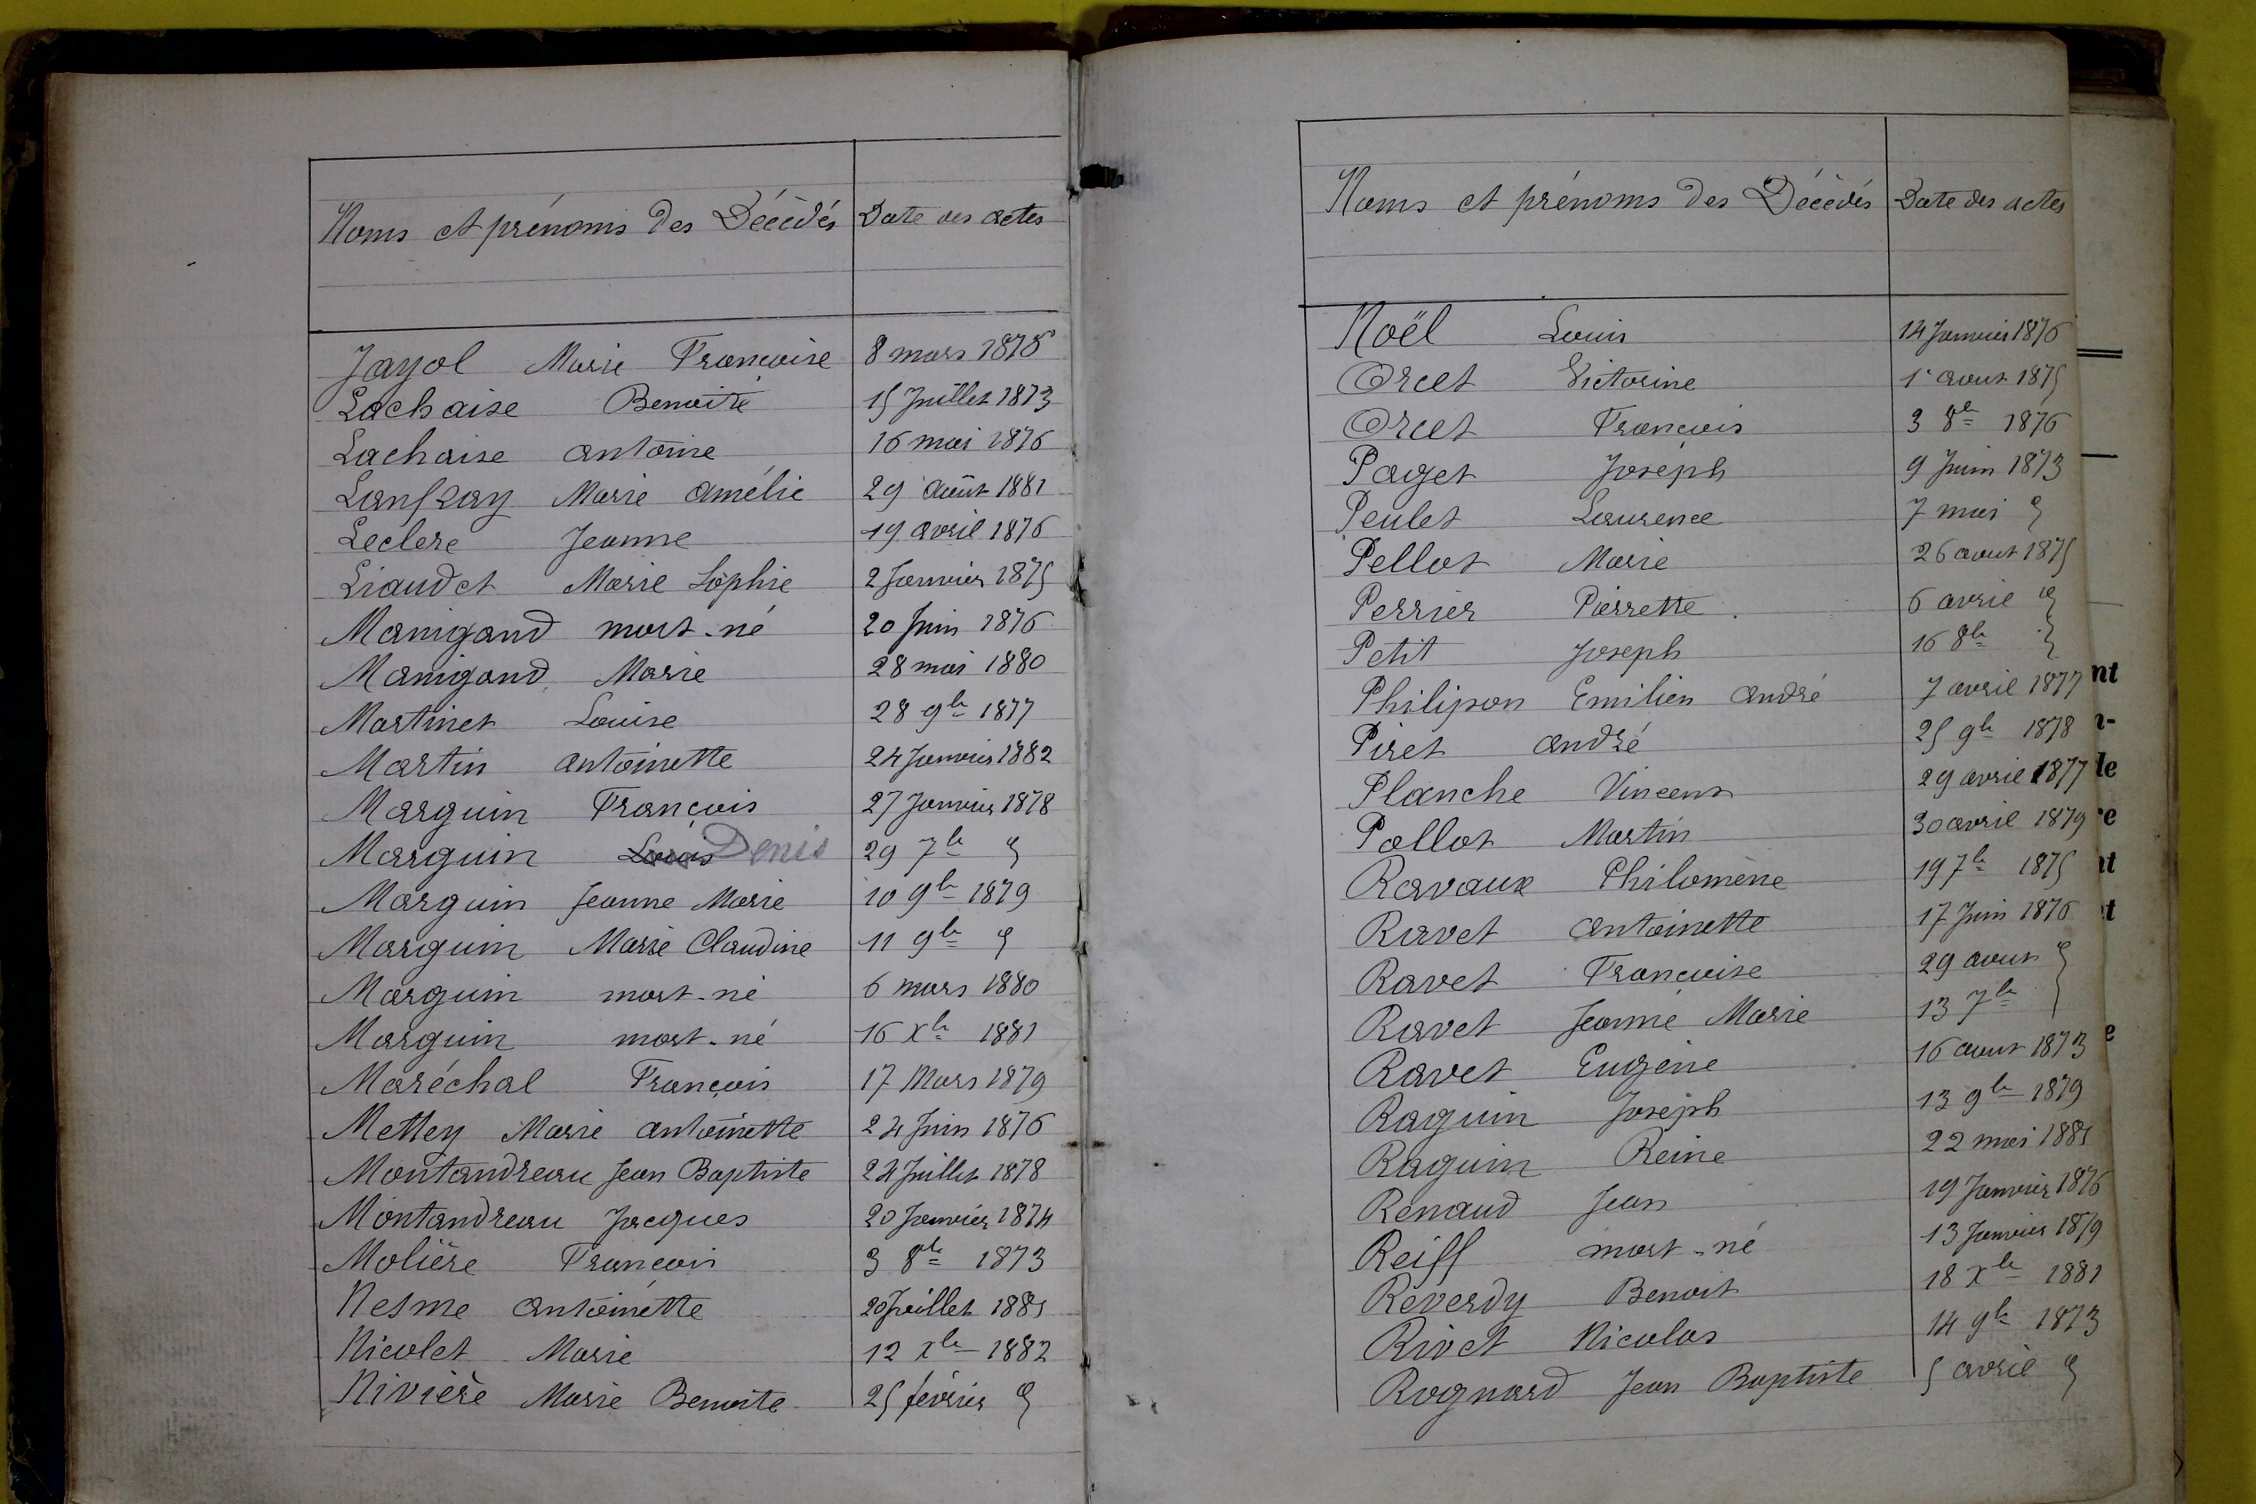 Noms et prénoms des Décédés Date des actes
Jayol Marie Françoise 8 mars 1878
Lachaise Benoite 15 Juillet 1873
Lachaise antoine 16 mai 1876
Lanfray Marie amélie 29 août 1881
Leclere Jeanne 19 avril 1876
Liaudet Marie Sophie 2 Janvier 1875
Manigand mort-né 20 Juin 1876
Manigand Marie 28 mai 1880
Martinet Louise 28 9bre 1877
Martin antoinette 24 Janvier 1882
Marguin François 27 Janvier 1878
Marguin Louis Denis 29 7bre "
Marguin Jeanne Marie 10 9bre 1879
Marguin Marie Claudine 11 9bre "
Marguin mort-né 6 mars 1880
Marguin mort-né 16 Xbre 1881
Maréchal François 17 Mars 1879
Mettey Marie antoinette 24 Juin 1876
Montandreau Jean Baptiste 24 Juillet 1878
Montandreau Jacques 20 Janvier 1874
Molière François 3 8bre 1873
Nesme antoinette 20 Juillet 1881
Nicolet Marie 12 Xbre 1882
Nivière Marie Benoite 25 février "
Noms et prénoms des Décédés Date des actes
Noël Louis 14 Janvier 1876
Orcet Victorine 1r aout 1875
Orcet François 3 8bre 1876
Paget Joseph 9 Juin 1873
Peulet Laurence 7 mai "
Pellot Marie 26 aout 1875
Perrier Pierrette. 6 avril "
Petit Joseph 16 8bre "
Philipon Emilien andré 7 avril 1877
Piret andré 25 9bre 1878
Planche Vincent 29 avril 1877
Pollot Martin 30 avril 1879
Ravaux Philomène 19 7bre 1875
Ravet antoinette 17 Juin 1876
Ravet Françoise 29 aout "
Ravet Jeanne Marie 13 7bre "
Ravet Eugène 16 aout 1873
Raguin Joseph 13 9bre 1879
Raguin Reine 22 mai 1881
Renaud Jean 19 Janvier 1876
Reiff mort-né 13 Janvier 1879
Reverdy Benoit 18 Xbre 1881
Rivet Nicolas 14 9bre 1873
Rognard Jean Baptiste 5 avril "
nt
le
re
nt
e